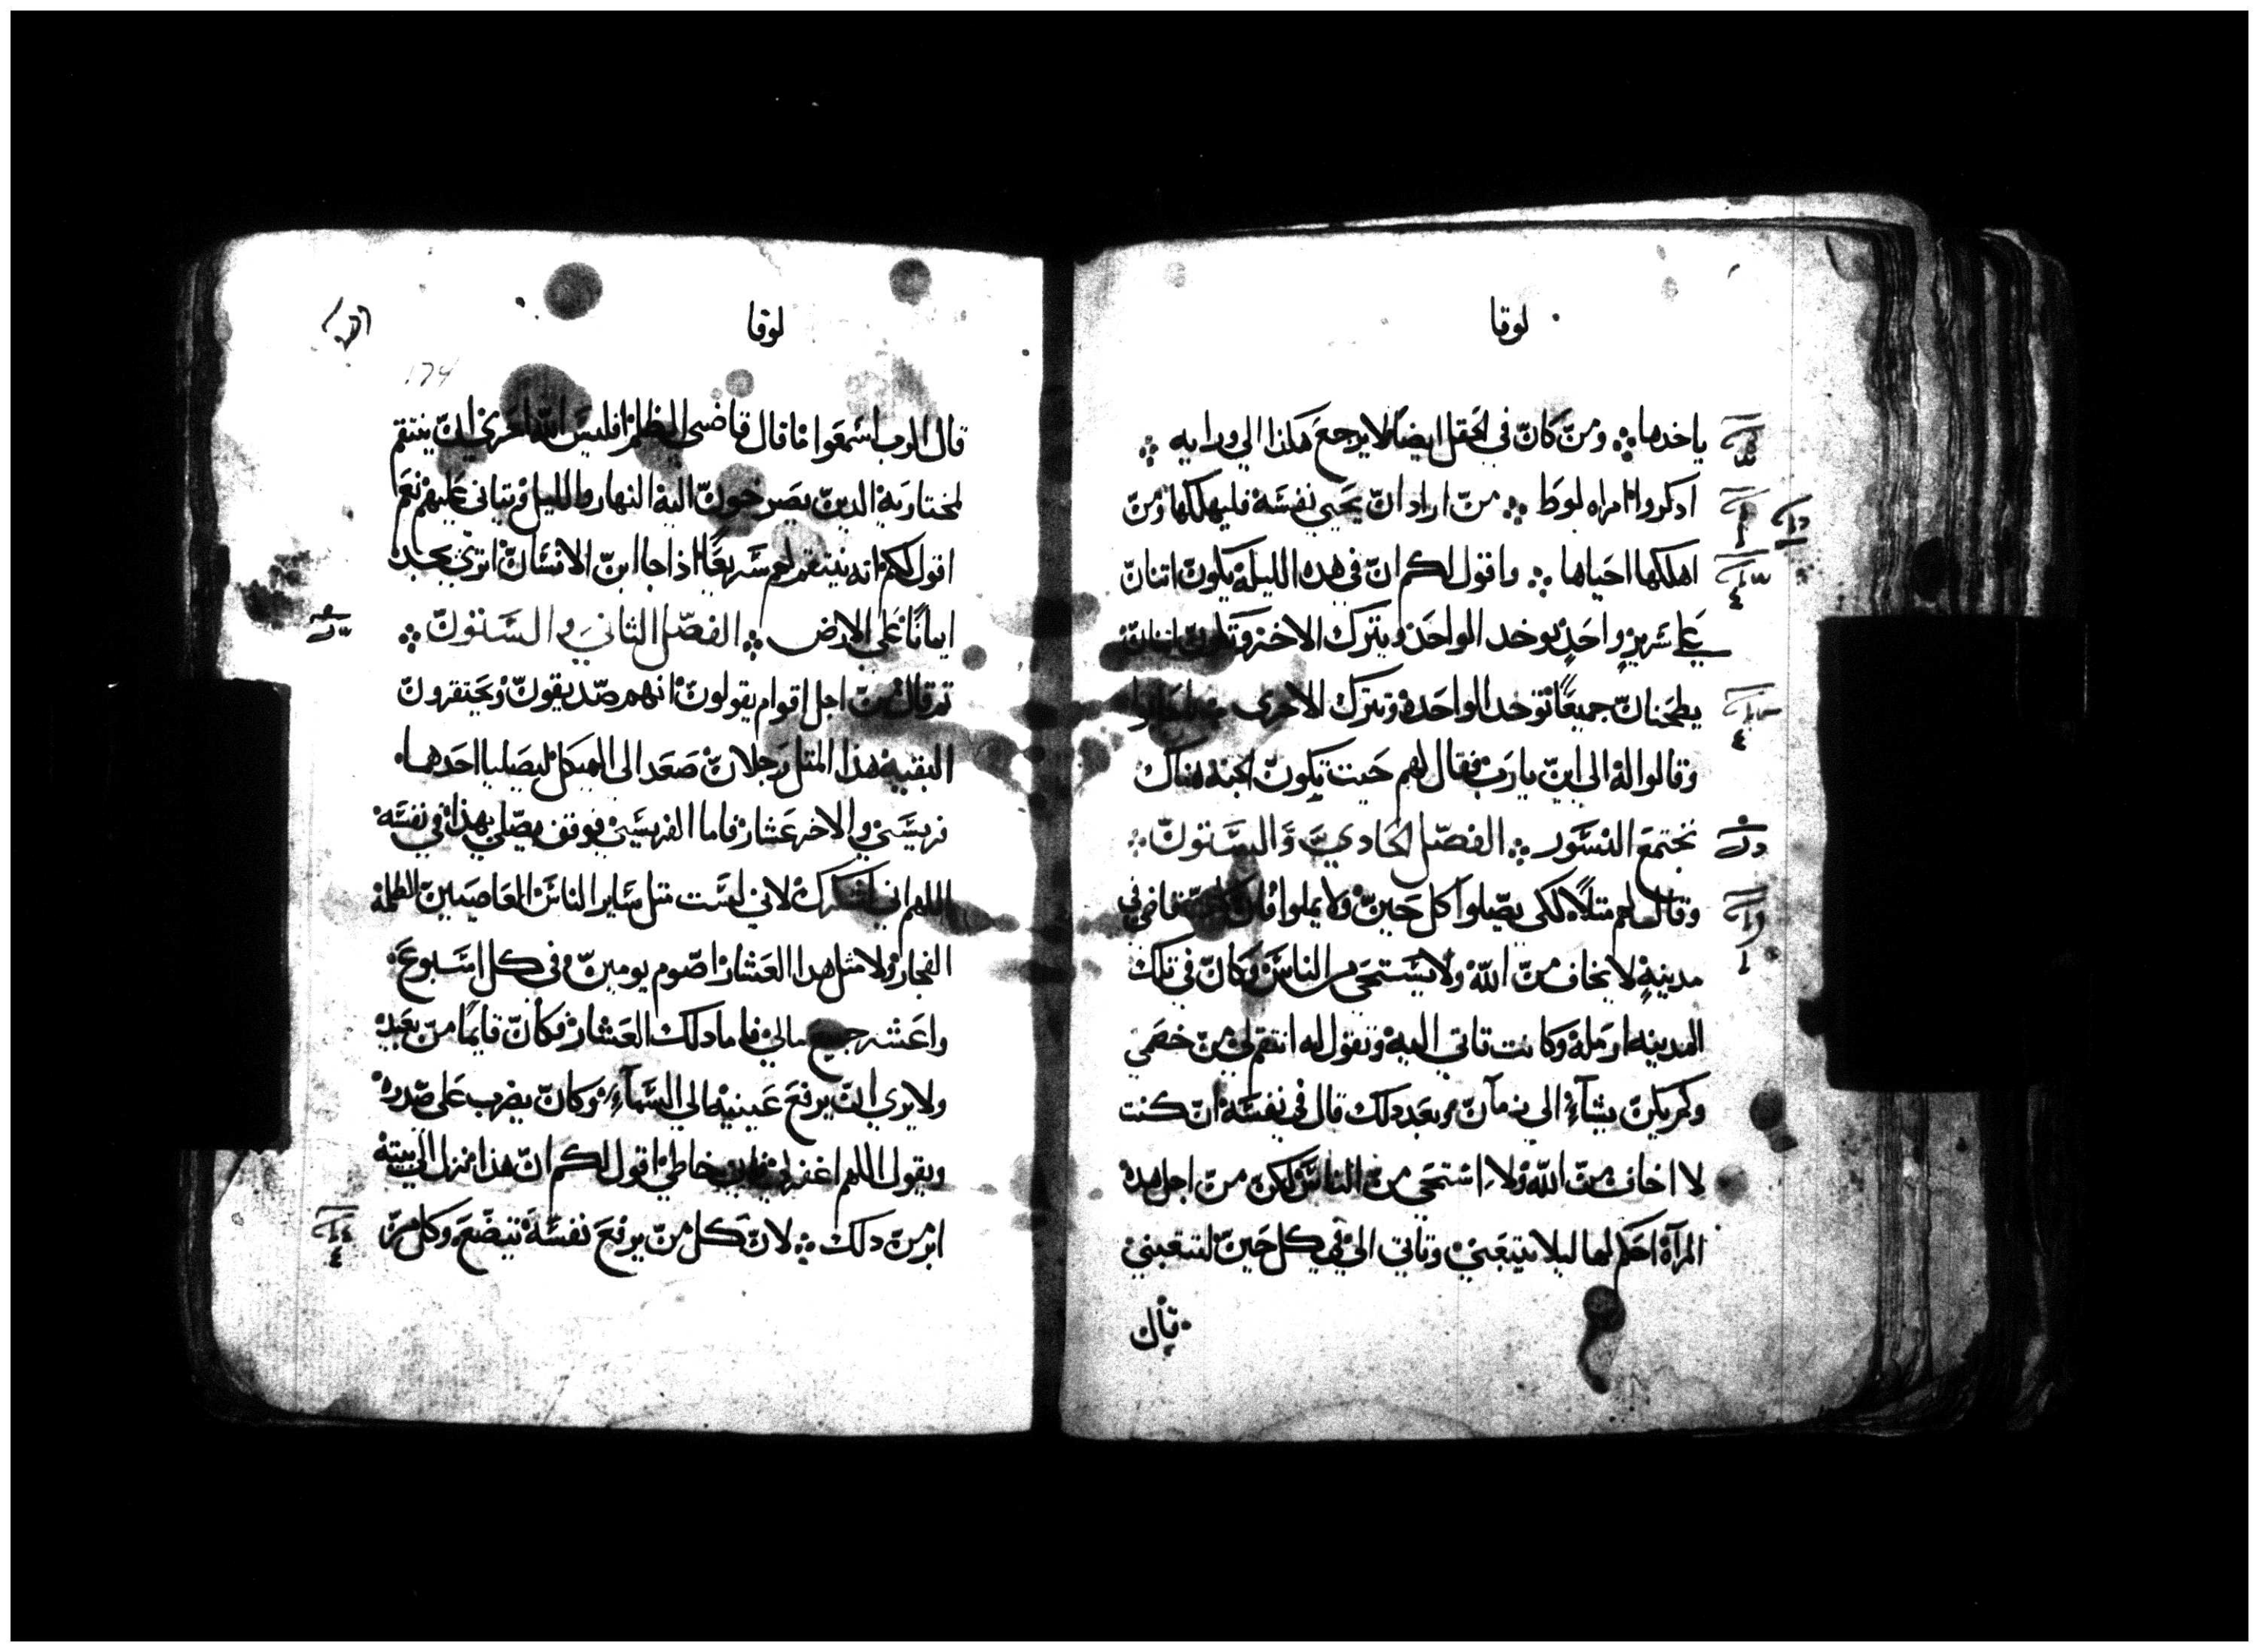 لوقا
ياخدها ⁘ ومن كان في الحقل ايضًا لا يرجع هكذا الي ورايه ⁘
ادكروا امراه لوط ⁘ من اراد ان يحيي نفسه فليهلكها ومن
اهلكها احياها ⁘ واقول لكم ان في هده الليله يكون اتنان
علي سريرٍ واحدٍ يوخد الواحد ويترك الاخر وتكون اتنتان
يطحنان جميعًا توخد الواحده وتترك الاخرى
وقالوا له الى اين يارب فقال لهم حيت تكون الجته هناك
تجتمع النسور ⁘ الفصل الحادي والستون ⁘
وقال لهم متلًا لكي يصلوا كل حين ولا يملوا قاضي في
مدينهٍ لا يخاف من الله ولا يستحي من الناس وكان في تلك
المدينه ارمله وكانت تاتي اليه وتقول له انتقم لي من خصمي
ولم يكن يشآء الي زمآن وبعد دلك قال في نفسه ان كنت
لا اخاف من الله ولا استحي من الناس لكن من اجل هده
المرآه احكم لها ليلا تتعبني وتاتي الي في كل حين لتتعبني
قال
لوقا
174
قال الرب اسمعوا ما قال قاضي الظلم افليس الله احري ان ينتقم
لمختاريه الدين يصرخون اليه النهار والليل ويتاني عليهم نعم
اقول لكم انه ينتقم لهم سريعًا اذا جا ابن الانسان اتري يجد
ايمانًا علي الارض ⁘ الفصل التاني والستون ⁘
تم قال من اجل اقوام يقولون انهم صديقون ويحتقرون
البقيه هذا المتل رجلان صعدا الى الهيكل ليصليا احدهما
فريسي والاخر عشار فاما الفريسي فوقف يصلي بهذا في نفسه
اللهم اني اشكرك لاني لست متل ساير الناس العاصيين الظلمه
الفجار ولا مثل هدا العشار اصوم يومين في كل اسبوع
واعشر جميع مالي فاما دلك العشار فكان قايمًا من بعيد
ولا يري ان يرفع عينيه الي السمآء وكان يضرب على صدره
ويقول اللهم اغفر لي فاني خاطي اقول لكم ان هذا نزل الي بيته
ابر من دلك ⁘ لان كل من يرفع نفسه يتضع وكل من